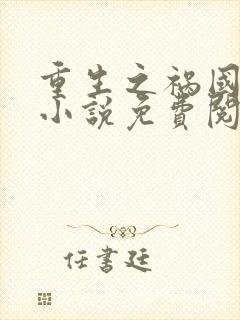 重生之禍國
小說免費閱
任書廷